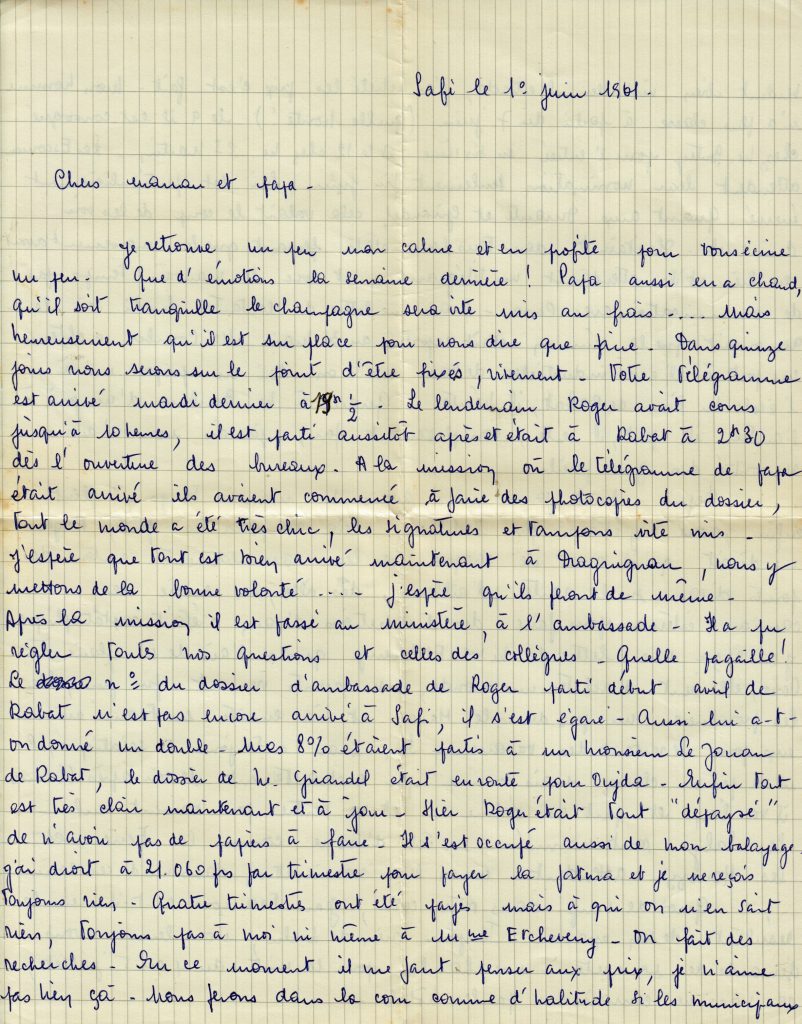 Safi le 1º juin 1961.
Chers maman et papa -
Je retrouve un peu mon calme et en profite pour vous écrire
un peu. Que d'émotions la semaine dernière ! Papa aussi en a chaud,
qu'il soit tranquille le champagne sera vite mis au frais .... Mais
heureusement qu'il est sur place pour nous dire que faire - Dans quinze
jours nous serons sur le point d'être fixés, vivement - Votre télégramme
est arrivé mardi dernier à 19h 1/2 - Le lendemain Roger avait cours
jusqu'à 10 heures, il est parti aussitôt après et était à Rabat à 2h30
dès l'ouverture des bureaux. A la mission où le télégramme de papa
était arrivé ils avaient commencé à faire des photocopies du dossier,
tout le monde a été très chic, les signatures et tampons vite mis -
j'espère que tout est bien arrivé maintenant à Draguignan, nous y
mettons de la bonne volonté .... j'espère qu'ils feront de même -
Après la mission il est passé au ministère, à l'ambassade - Il a pu
régler toutes nos questions et celles des collègues - Quelle pagaille !
Le nº du dossier d'ambassade de Roger parti début avril de
Rabat n'est pas encore arrivé à Safi, il s'est égaré - Aussi lui a-t-
on donné un double - Mes 8% étaient partis à un monsieur Le Jouan
de Rabat, le dossier de M. Girandel était en route pour Oujda - Enfin tout
est très clair maintenant et à jour - Hier Roger était tout "dépaysé"
de n'avoir pas de papiers à faire - Il s'est occupé aussi de mon balayage,
j'ai droit à 21.060 frs par trimestre pour payer la fatma et je ne reçois
toujours rien - Quatre trimestres ont été payés mais à qui on n'en sait
rien, toujours pas à moi ni même à Mme Etcheverry - On fait des
recherches - En ce moment il me faut penser aux prix, je n'aime
pas bien çà - Nous ferons dans la cour comme d'habitude si les municipaux